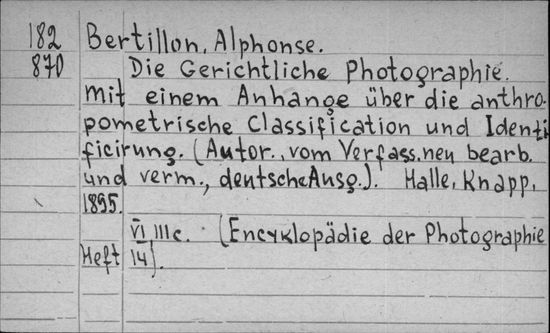 182 Bertillon, Alphonse.
870 Die Gerichtliche Photographie.
Mit einem Anhange über die anthro-
pometrische Classification und Identi-
ficirung. (Autor., vom Verfass. neu bearb.
und verm., deutsche Ausg.). Halle, Knapp,
1895.
VI 111 c. (Encyklopädie der Photographie
Heft 14).